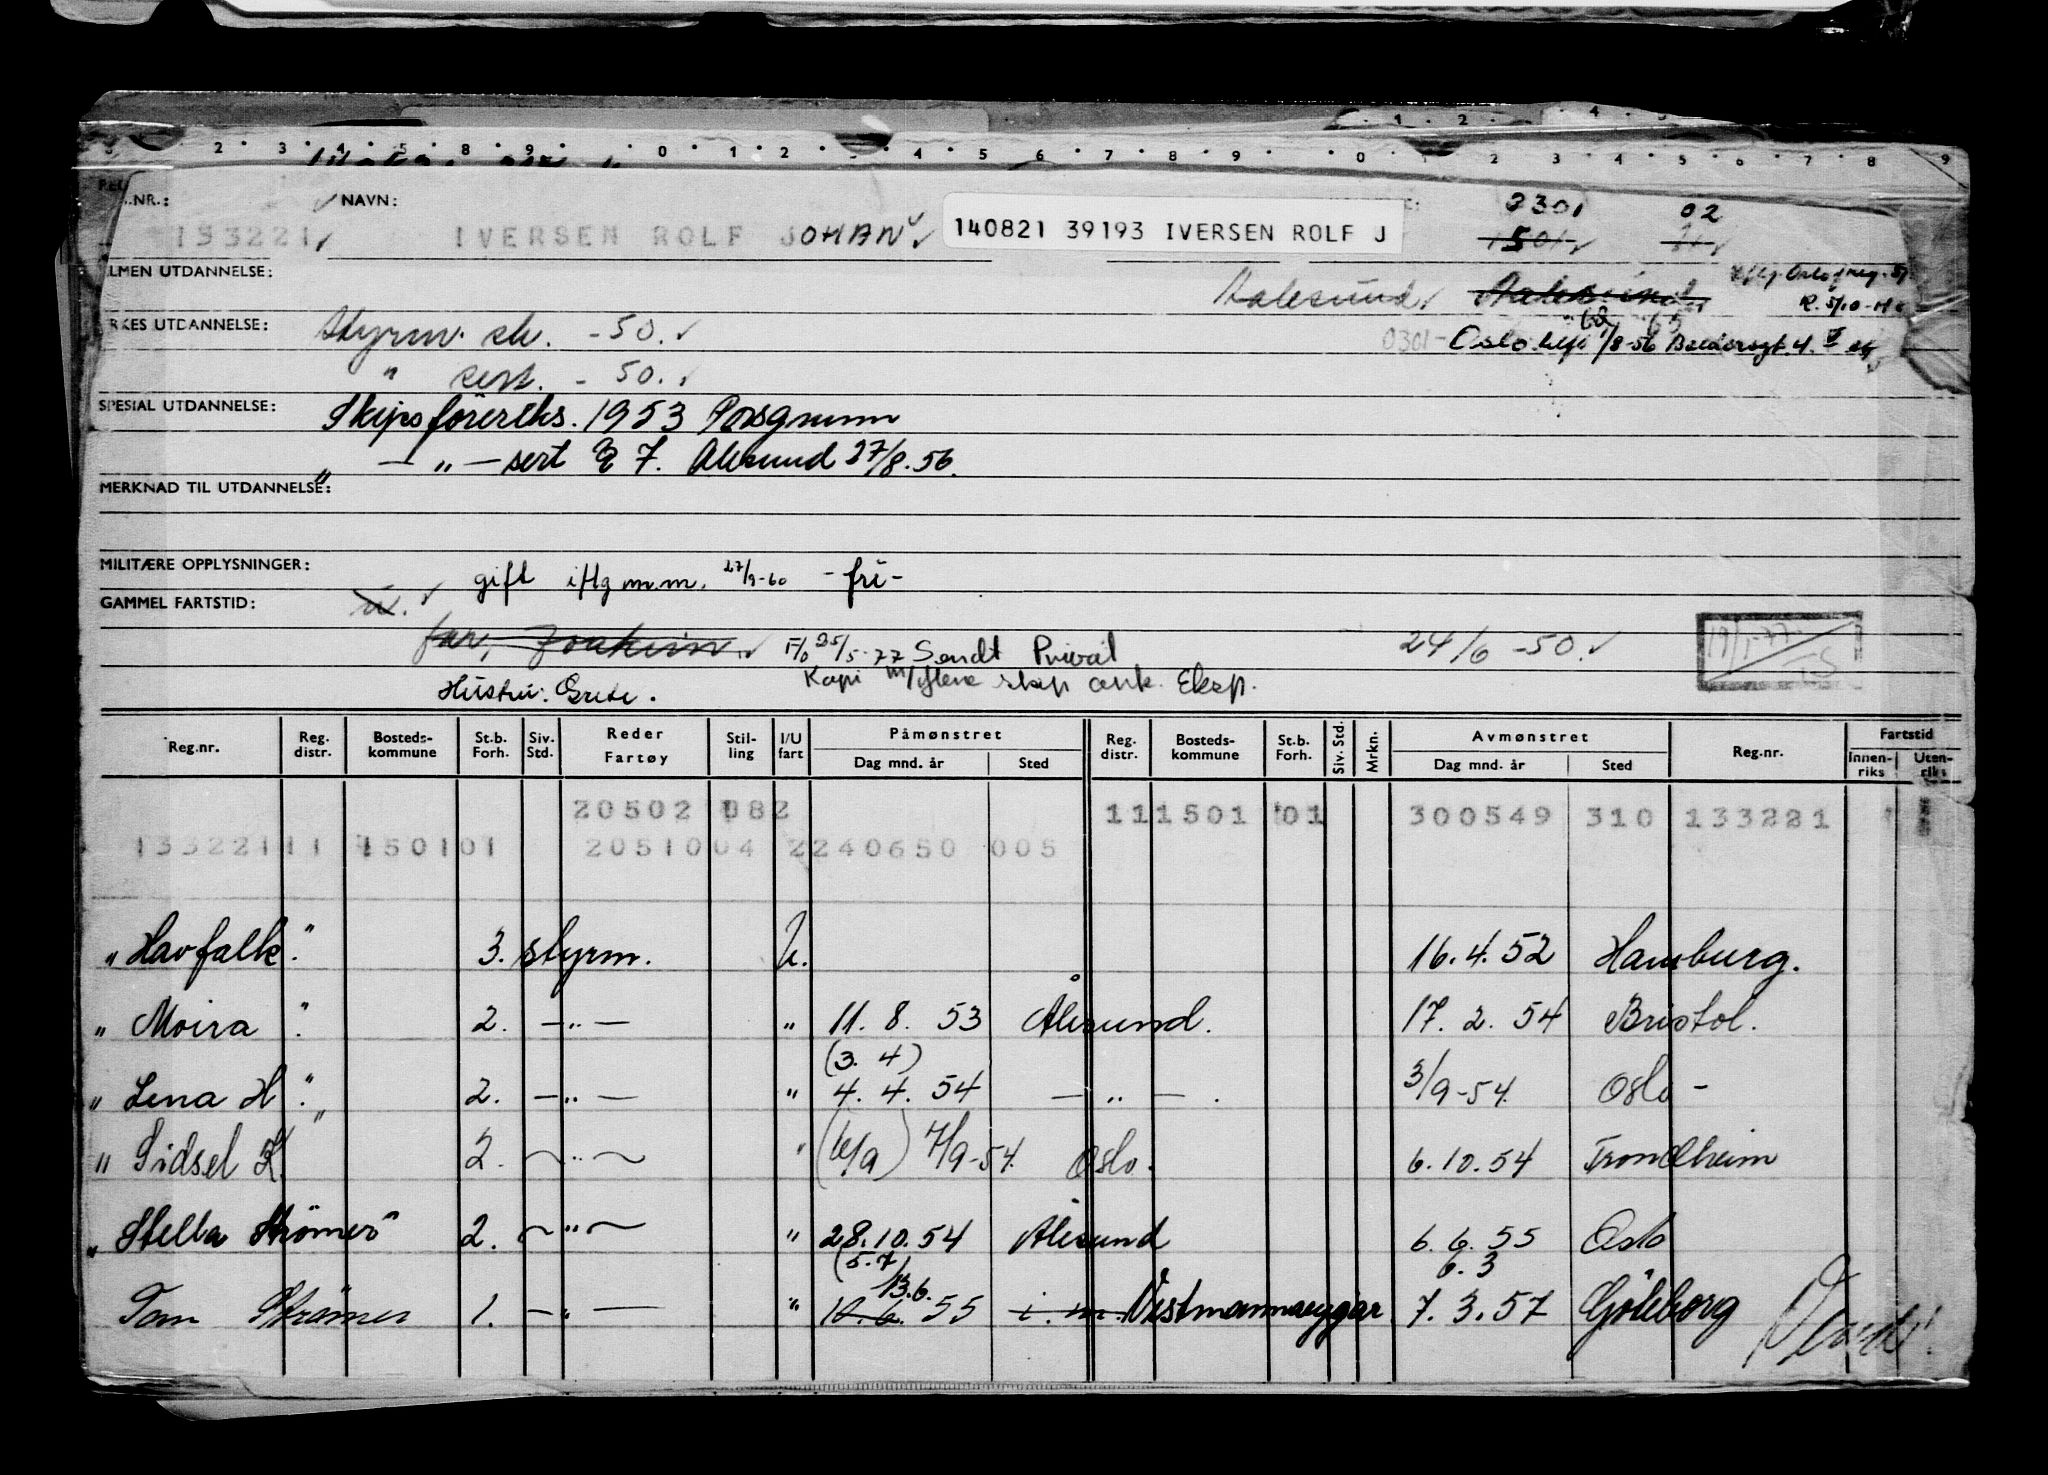 1 2 4
2 3 4 5 8 9 0 1 2 4 5 6 7 8 9 0 2 3 4 5 6 7 8 9
NR.: NAVN: 2301 02
133221 IVERSEN ROLF JOHAN 140821 39193 IVERSEN ROLF J 1501
LMEN UTDANNELSE: Aalesund Aalesund
RKES UTDANNELSE: Styrm. sk. - 50. 0301 - Oslo 1/8-56
" sert. - 50.
SPESIAL UTDANNELSE: Skipsföererks. 1953 Porsgrunn
" — " — sert 7. Alesund 27/8.56.
MERKNAD TIL UTDANNELSE:
MILITÆRE OPPLYSNINGER: gift iflg m.m. 27/9-60 - fri -
GAMMEL FARTSTID:
far, Joakim 25/5-77 Sendt Privat 24/6 - 50. 19/5-77
Hustru: Grete. Kopi Eksp.
Reg.nr. Reg. distr. Bosteds-kommune St.b. Forh. Siv. Std. Reder Fartøy Stil-ling I/U fart Påmønstret Dag mnd. år Sted Reg. distr. Bosteds-kommune St.b. Forh. Siv. Std. Mrkn. Avmønstret Dag mnd. år Sted Reg.nr. Fartstid Innen-riks Uten-riks
20502 082 111501 01 300549 310 133221
13322111 150101 2051004 2240650 005
"Havfalk" 3. styrm. U. 16.4.52 Hamburg.
"Moira" 2. — " — " 11. 8. 53 Ålesund. 17. 2. 54 Bristol.
(3. 4)
"Lena H" 2. — " — " 4. 4. 54 — " — . 3/9-54 Oslo -
"Sidsel K" 2. — " — " (6/9) 7/9-54 Oslo. 6.10.54 Trondheim
"Stella Strömer" 2. — " — " 28.10.54 Ålesund 6. 6. 55 Oslo
(5.7) 6. 3
13.6.
Tom Strömer 1. — " — " 10. 6. 55 i. m. Vestmannaeyjar 7. 3. 57 Göteborg